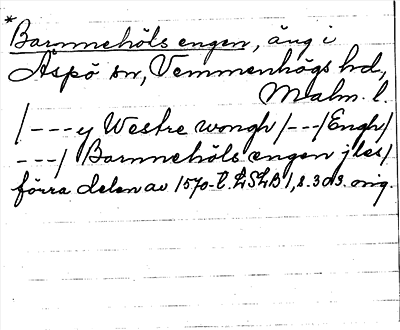 *
Barnnehöls engen, äng i
Äspö sn, Vemmenhögs hd,
Malm. l.
/---y Westre wongh/---/Engh/
---/ Barnnehöls engen j les/
förra delen av 1570-t. LSLB 1, s. 303. orig.